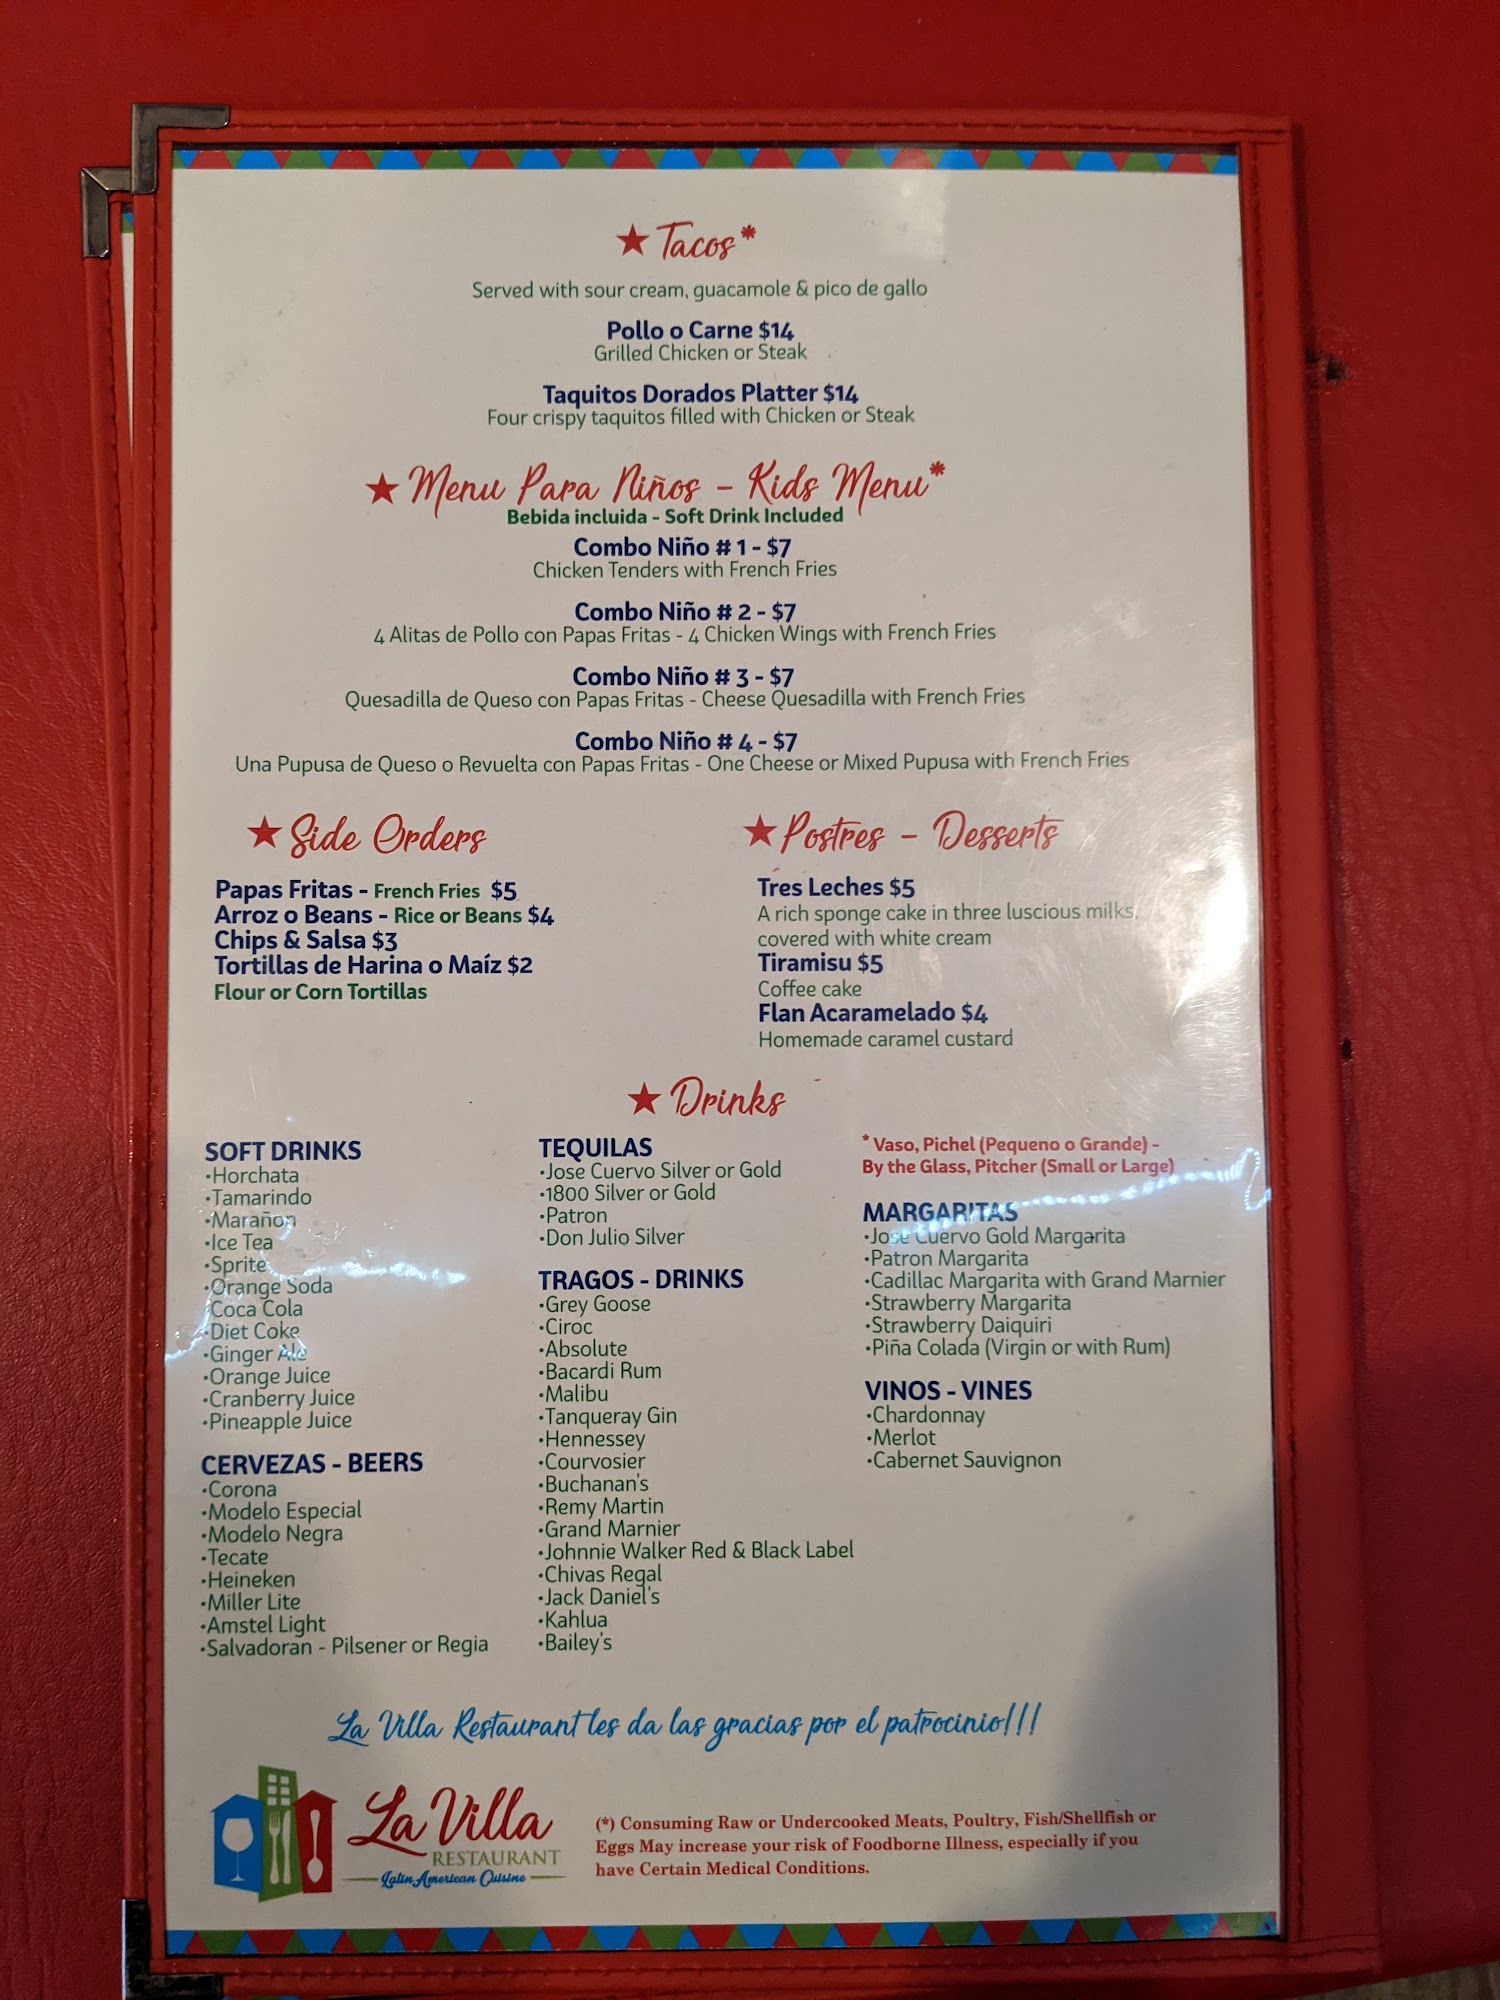 Tacos*
Served with sour cream, guacamole & pico de gallo
Pollo o Carne $14
Grilled Chicken or Steak
Taquitos Dorados Platter $14
Four crispy taquitos filled with Chicken or Steak
Menu Para Niños - Kids Menu*
Bebida incluida - Soft Drink Included
Combo Niño # 1 - $7
Chicken Tenders with French Fries
Combo Niño # 2 - $7
4 Alitas de Pollo con Papas Fritas - 4 Chicken Wings with French Fries
Combo Niño # 3 - $7
Quesadilla de Queso con Papas Fritas - Cheese Quesadilla with French Fries
Combo Niño # 4 - $7
Una Pupusa de Queso o Revuelta con Papas Fritas - One Cheese or Mixed Pupusa with French Fries
Side Orders
Papas Fritas - French Fries $5
Arroz o Beans - Rice or Beans $4
Chips & Salsa $3
Tortillas de Harina o Maíz $2
Flour or Corn Tortillas
Postres - Desserts
Tres Leches $5
A rich sponge cake in three luscious milks,
covered with white cream
Tiramisu $5
Coffee cake
Flan Acaramelado $4
Homemade caramel custard
Drinks
SOFT DRINKS
•Horchata
•Tamarindo
•Marañon
•Ice Tea
•Sprite
•Orange Soda
•Coca Cola
•Diet Coke
•Ginger Ale
•Orange Juice
•Cranberry Juice
•Pineapple Juice
CERVEZAS - BEERS
•Corona
•Modelo Especial
•Modelo Negra
•Tecate
•Heineken
•Miller Lite
•Amstel Light
•Salvadoran - Pilsener or Regia
TEQUILAS
•Jose Cuervo Silver or Gold
•1800 Silver or Gold
•Patron
•Don Julio Silver
TRAGOS - DRINKS
•Grey Goose
•Ciroc
•Absolute
•Bacardi Rum
•Malibu
•Tanqueray Gin
•Hennessey
•Courvosier
•Buchanan's
•Remy Martin
•Grand Marnier
•Johnnie Walker Red & Black Label
•Chivas Regal
•Jack Daniel's
•Kahlua
•Bailey's
* Vaso, Pichel (Pequeno o Grande) -
By the Glass, Pitcher (Small or Large)
MARGARITAS
•Jose Cuervo Gold Margarita
•Patron Margarita
•Cadillac Margarita with Grand Marnier
•Strawberry Margarita
•Strawberry Daiquiri
•Piña Colada (Virgin or with Rum)
VINOS - VINES
•Chardonnay
•Merlot
•Cabernet Sauvignon
La Villa Restaurant les da las gracias por el patrocinio!!!
La Villa
RESTAURANT
Latin American Cuisine
(*) Consuming Raw or Undercooked Meats, Poultry, Fish/Shellfish or
Eggs May increase your risk of Foodborne Illness, especially if you
have Certain Medical Conditions.